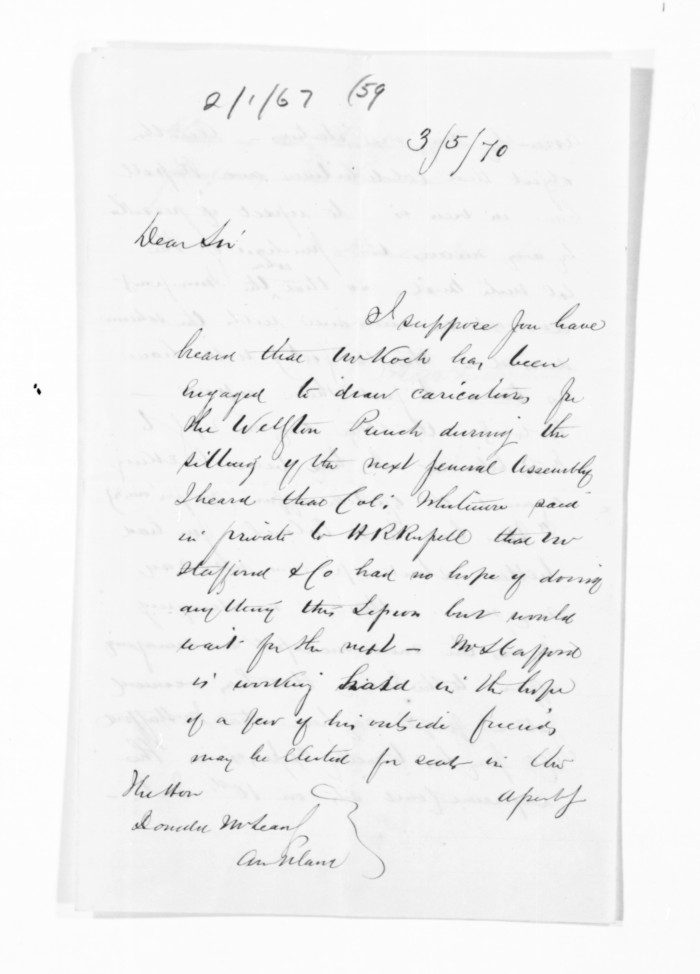 2/1/67 (59
3/5/70
Dear Sir
I suppose you have
heard that Mr Koch has been
engaged to draw caricatures for
the Wellgton Punch during the
sitting of the next General Assembly
I heard that Col: Whitmore said
in private to H R Russell that Mr
Stafford & Co had no hope of doing
anything this Session but would
wait for the next — Mr Stafford
is working hard in the hope
of a few of his outside friends
may be elected for seats in the
The Hon
Donald McLean
Auckland